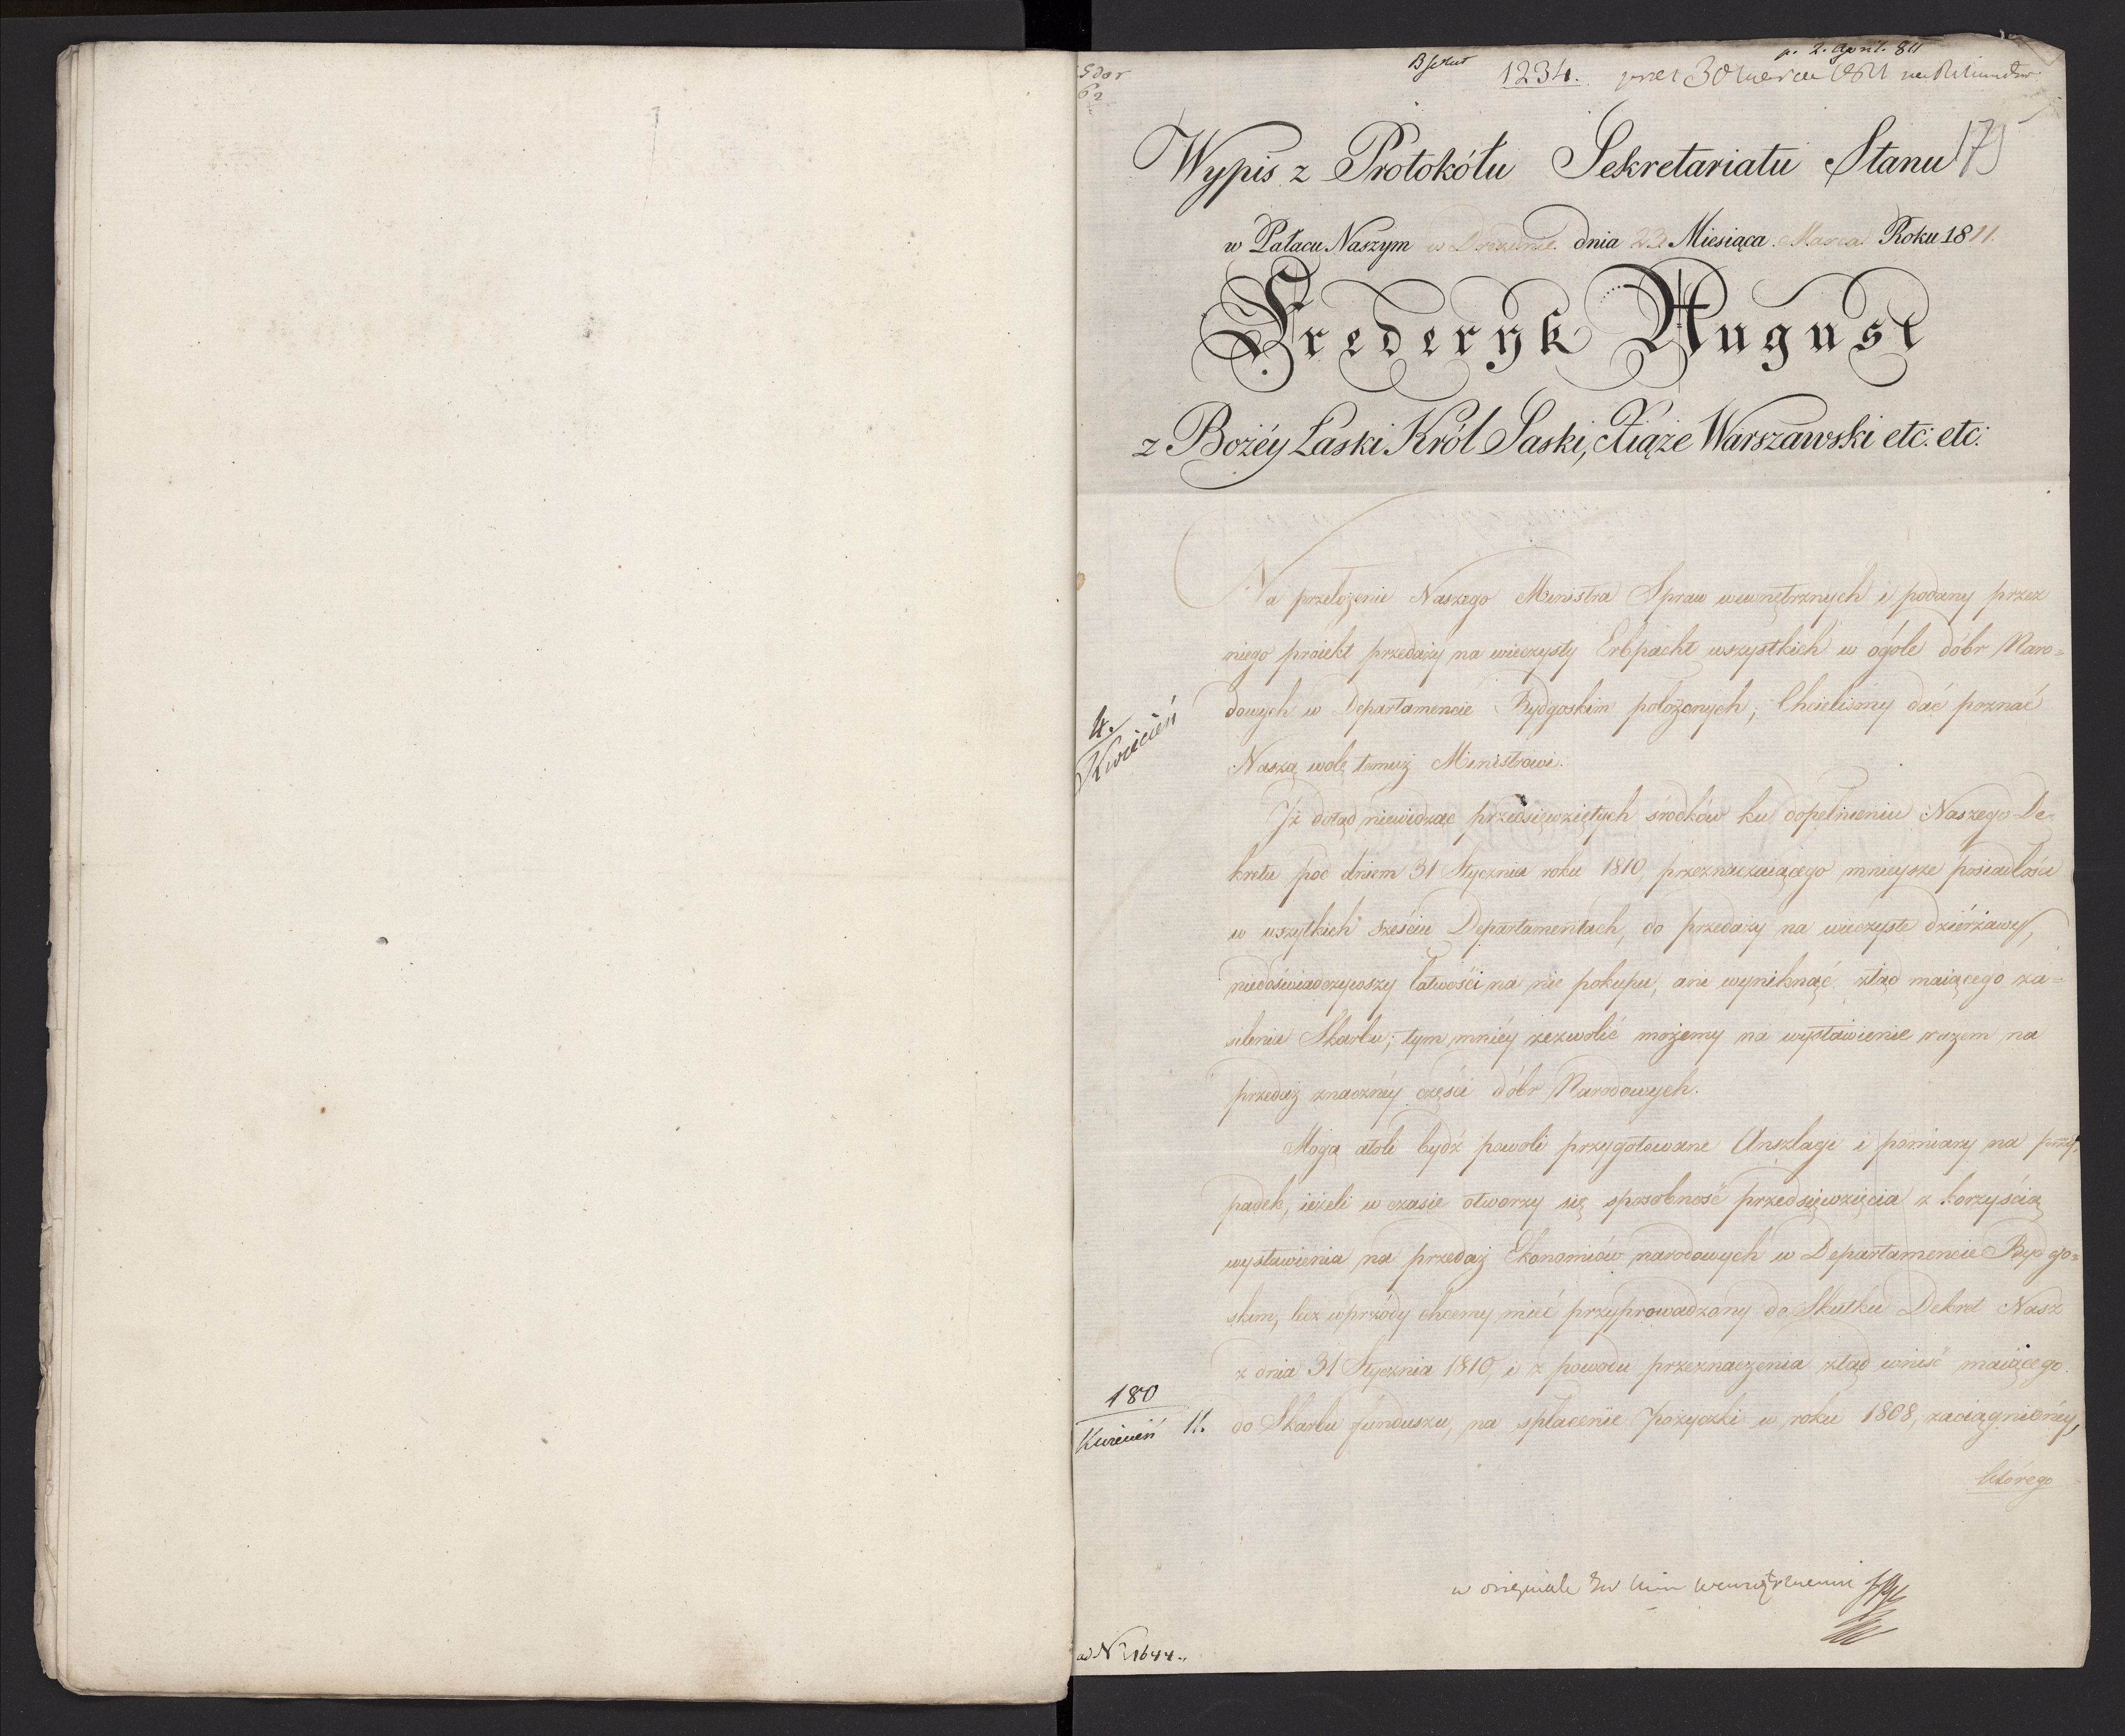 p. 2. April. 811
1234. 30 Marca 1811
175
Wypis z Protokółu Sekretariatu Stanu
w Pałacu Naszym w Dreznie dnia 23 Miesiąca Marca Roku 1811.
Frederyk August
z Bożéy Łaski Król Saski, Xiąże Warszawski etc: etc:
Na przełożenie Naszego Ministra Spraw wewnętrznych i podany przez
niego proiekt przedaży na wieczysty Erbpacht wszystkich w ogóle dóbr Naro=
dowych w Departamencie Bydgoskim położonych; Chcieliśmy dać poznać
Naszą wolę temuż Ministrowi.
4.
Kwiecień
Iż dotąd niewidząc przedsięwziętych srodków ku dopełnieniu Naszego De=
kretu pod dniem 31 Stycznia roku 1810, przeznaczaiącego mnieysze posiadłości
w wszytkich sześciu Departamentach, do przedaży na wieczyste dzierżawy,
niedoświadczywszy łatwości na nie pokupu, ani wyniknąć ztąd maiącego za=
silenia Skarbu; tym mniéy zezwolić możemy na wystawienie razem na
przedaż znacznéy części dóbr Narodowych.
Mogą atoli bydź powoli przygotowane Anszlagi i pomiary na przy=
padek, ieżeli w czasie otworzy się sposobność przedsięwzięcia z korzyścią
wystawienia na przedaż Ekonomiów narodowych w Departamencie Bydgo=
skim, lecz wprzódy chcemy mieć przyprowadzony do Skutku Dekret Nasz
z dnia 31 Stycznia 1810, i z powodu przeznaczenia ztąd wniść maiącego
do Skarbu funduszu, na spłacenie Pożyczki w roku 1808, zaciągnionéy,
180
Kwiecień 11.
którego
w oryginale
ad N° 1644.